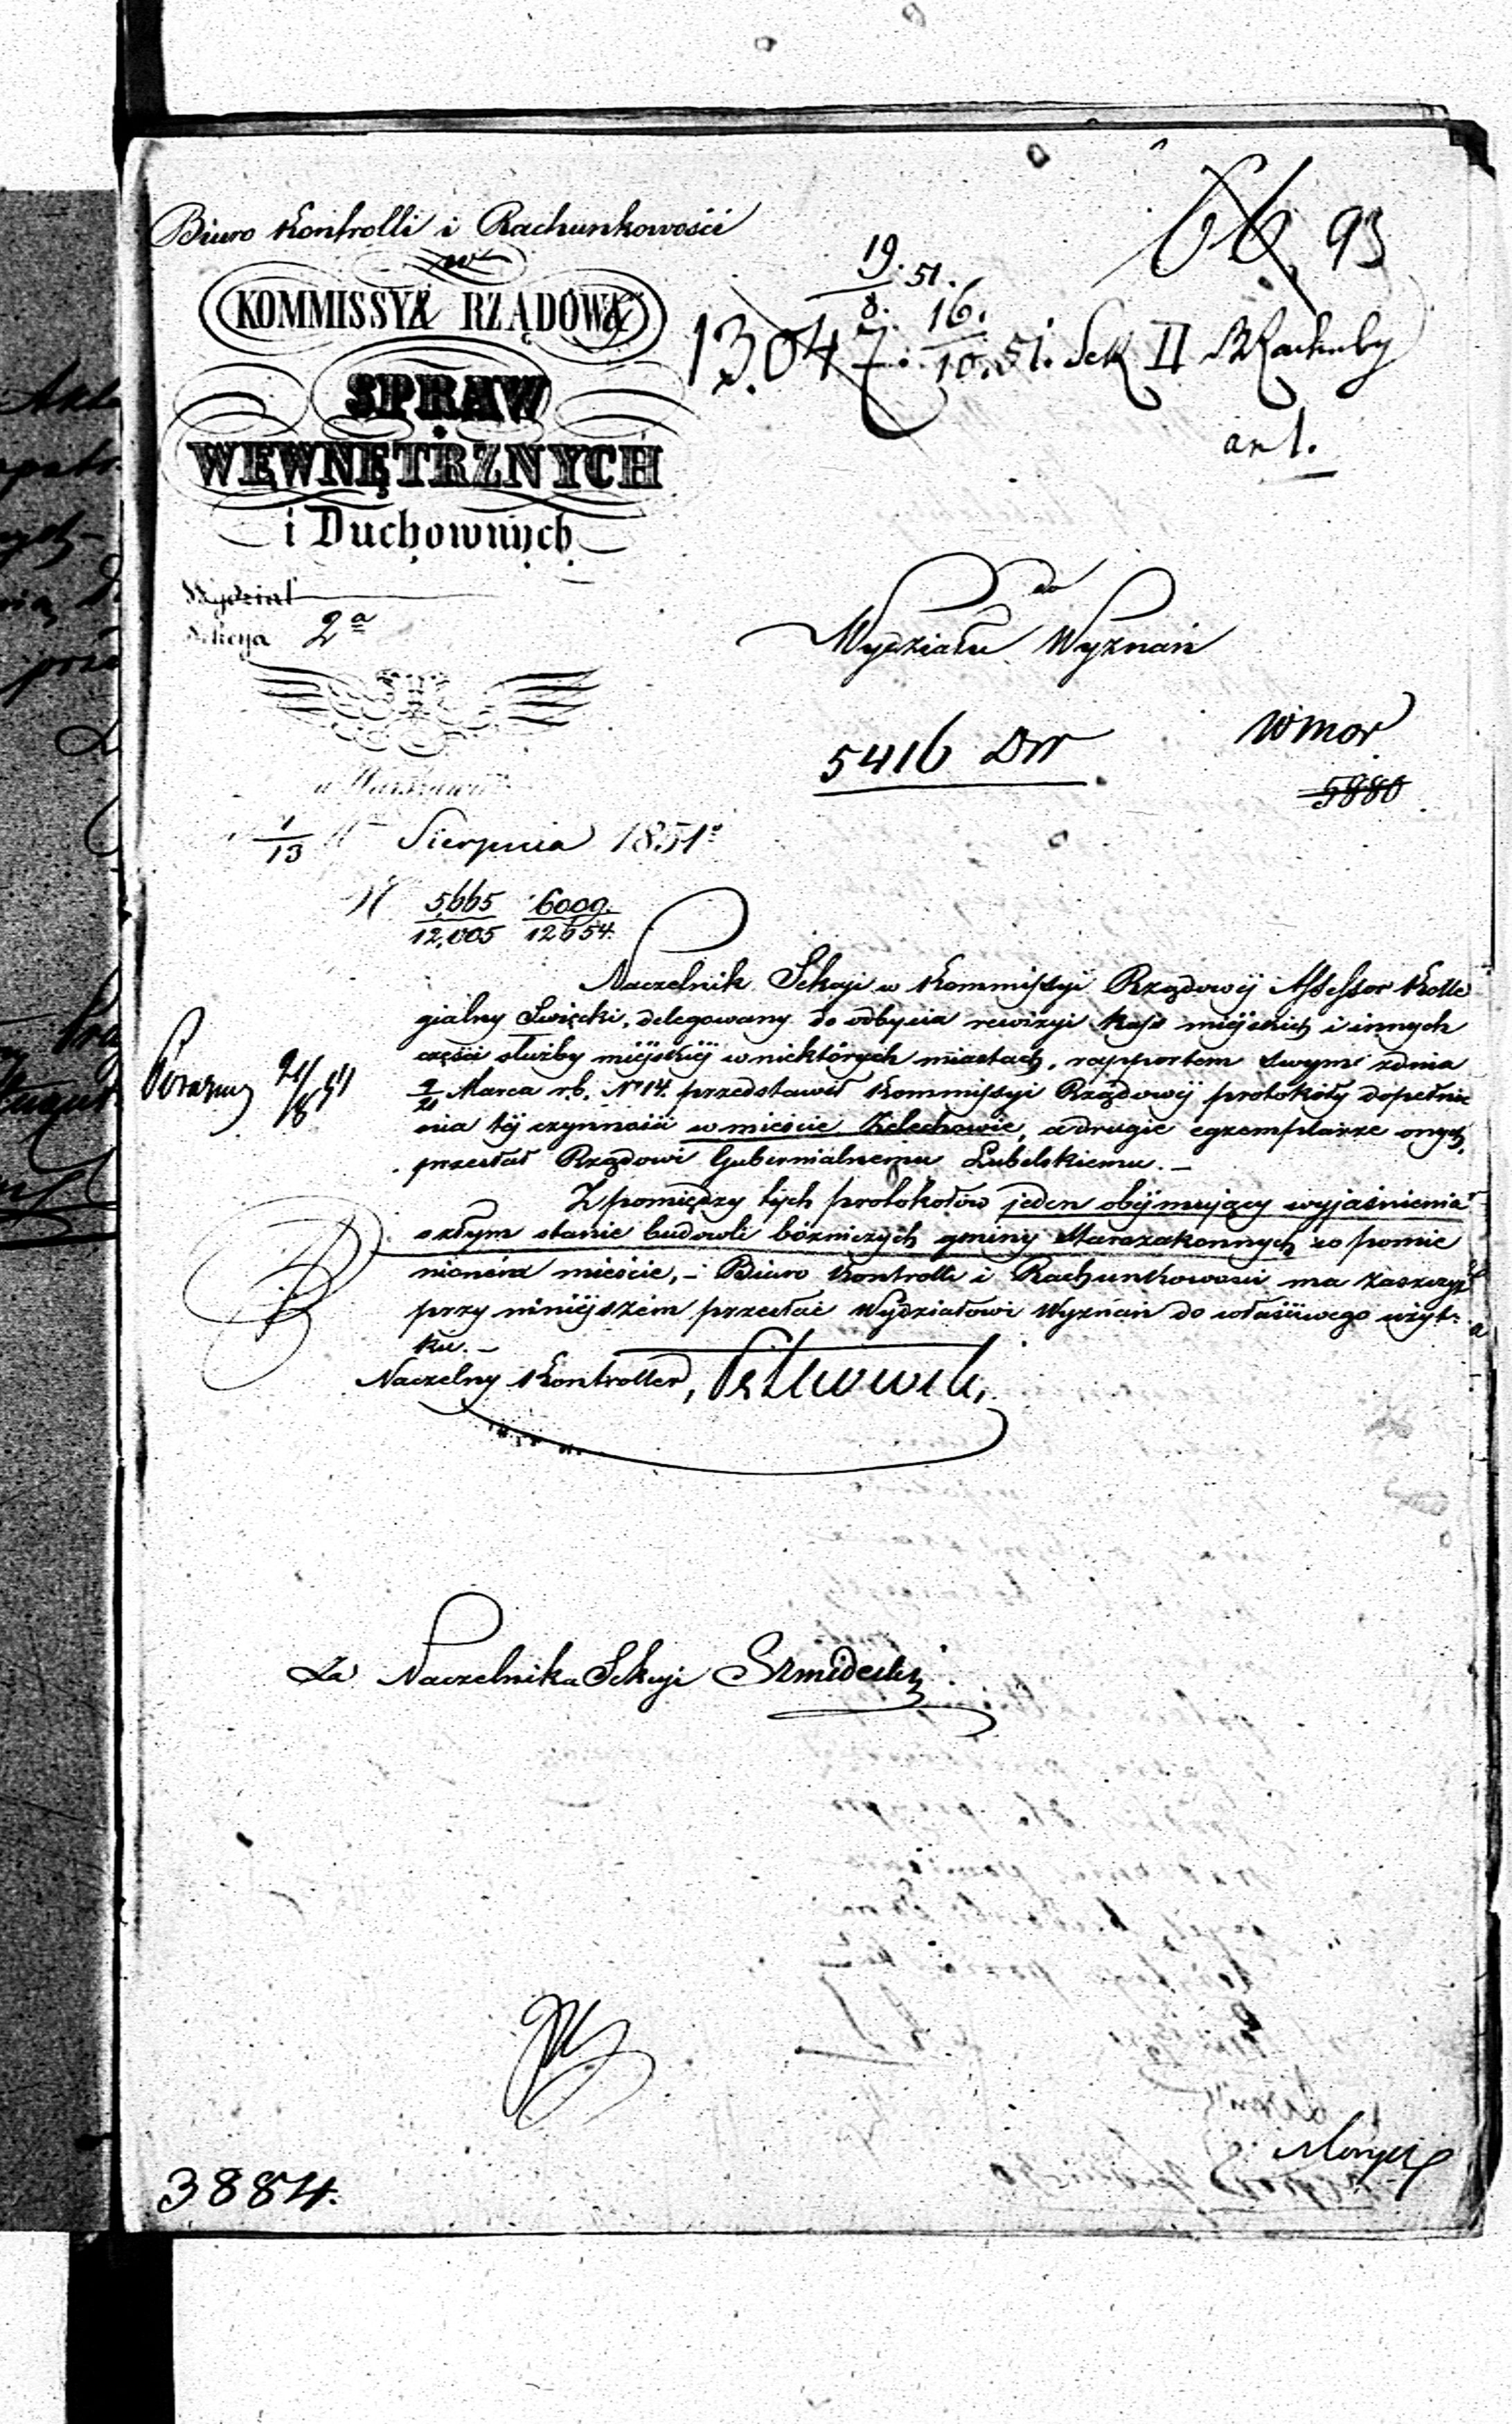 Biuro Kontrolli i Rachunkowości
w
KOMMISSYA RZĄDOWA
SPRAW
WEWNĘTRZNYCH
i Duchownych
Wydział
Sekcya 2a
w Warszawie
1/13 Sierpnia 1851 r
N 5,665/12,005 6009./12654.
66 93
19/8. 51.
13.047. 16./10. 51. Sek II
an 1.
do
Wydziału Wyznań
5416 DW
5880
Naczelnik Sekcji w Kommissyi Rządowéj Assessor Kolle
gialny Święcki, delegowany do odbycia rewizyi kass miéjskich i innych
części służby miéjskiéj w niektórych miastach, rapportem swym z dnia
9/21 Marca r.b. N° 14. przedstawił Kommissyi Rządowéj protokóły dopełnie
nia téj czynności w mieście Żelechowie, a drugie egzemplarze onych,
przesłał Rządowi Gubernialnemu Lubelskiemu. —
Z pomiędzy tych protokołów jeden obéjmujący wyjaśnienia
o złym stanie budowli bóżniczych gminy Starozakonnych w pomie
nioném mieście, — Biuro Kontrolli i Rachunkowości ma zaszczyt
przy niniéjszém przesłać Wydziałowi Wyznań do właściwego użyt:
ku. —
Naczelny Kontroller,
21/8 51
Za Naczelnika Sekcyi
3884.